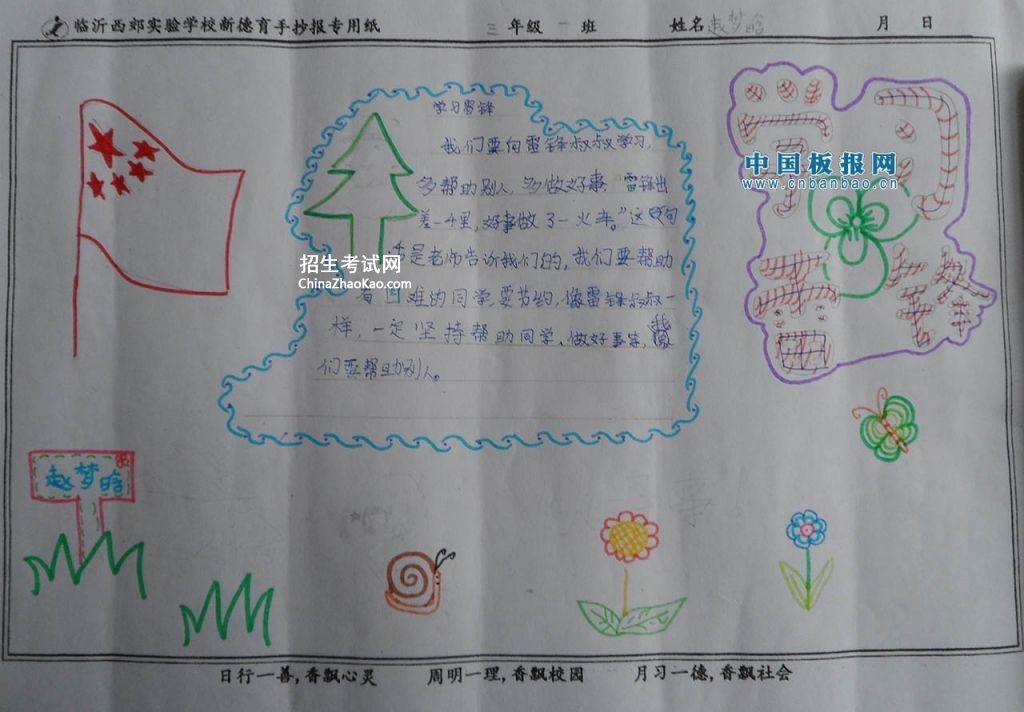 临沂西郊实验学校新德育手抄报专用纸 三年级一班 姓名赵梦晗 月 日
学习雷锋
我们要向雷锋叔叔学习,
多帮助别人,多做好事.雷锋出
差一4里,好事做了一火车"这句
是老师告诉我们的,我们要帮助
有困难的同学要节约,像雷锋叔叔一
样,一定坚持帮助同学、做好事等,我
们要帮助别人。
中国板报网
www.cnbanbao.cn
招生考试网
ChinaZhaoKao.com
赵梦晗
日行一善,香飘心灵 周明一理,香飘校园 月习一德,香飘社会